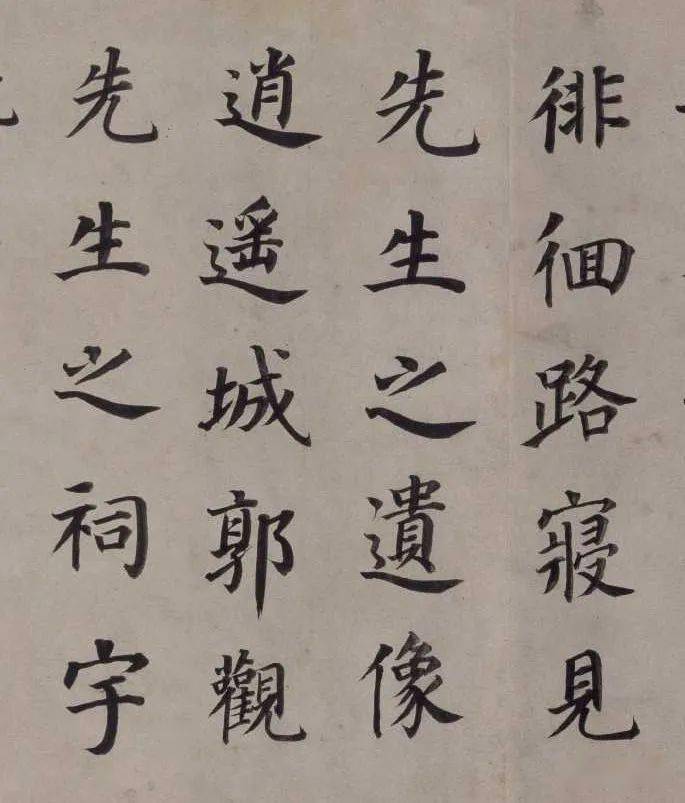 徘徊路寢見
先生之遺像
逍遥城郭觀
先生之祠宇